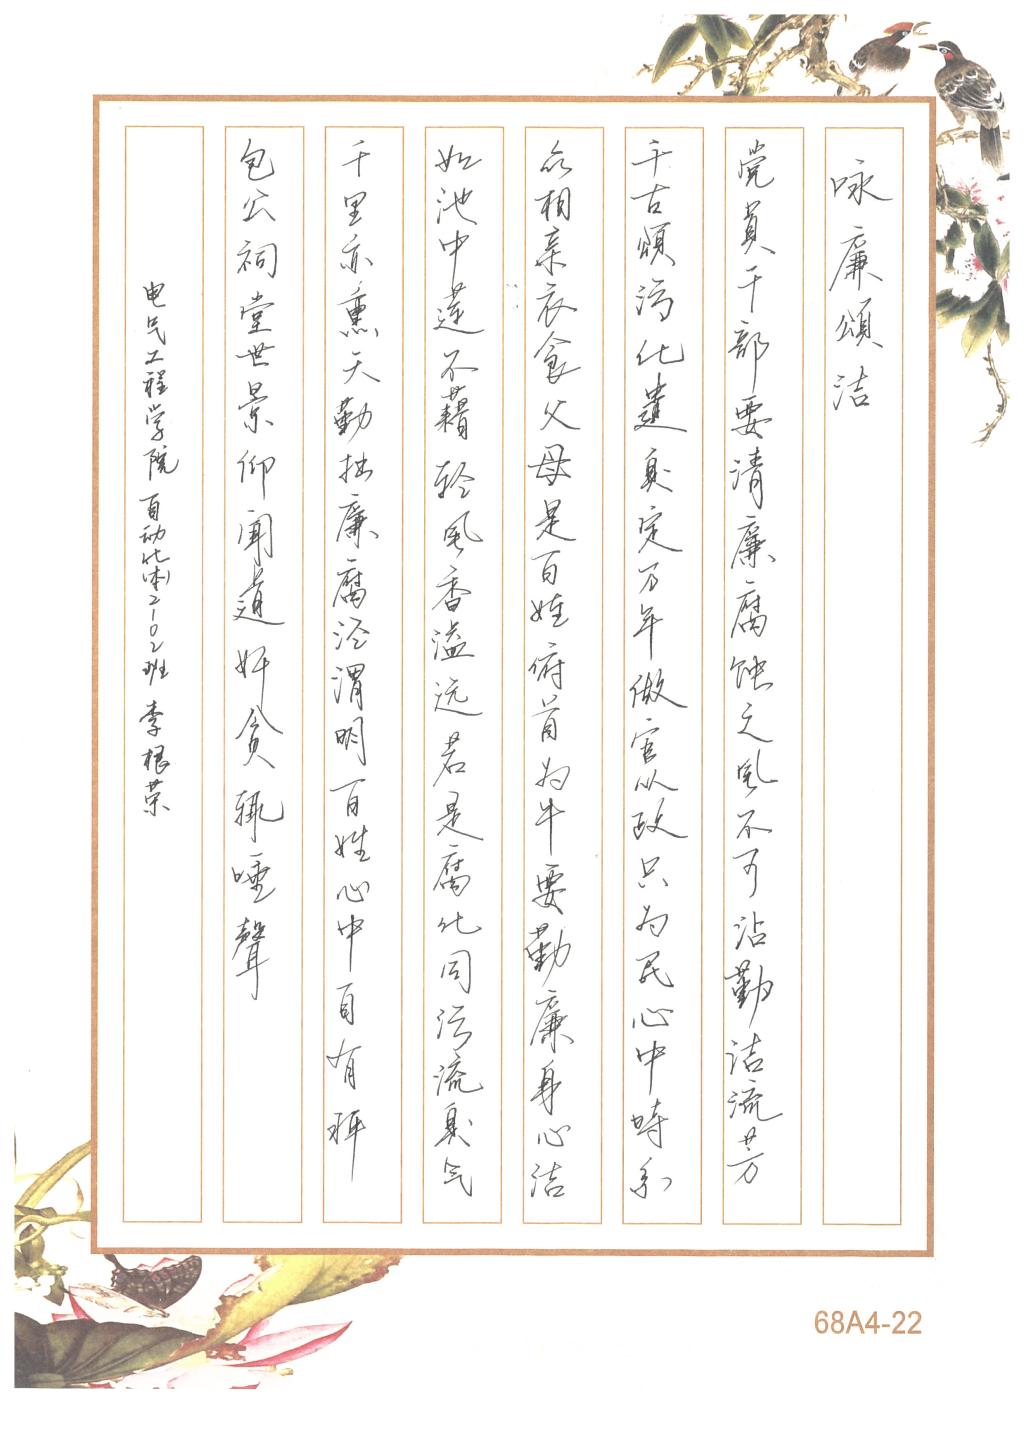 咏廉頌洁
党員干部要清廉腐蚀之風不可沾勤洁流芳
千古頌污化遺臭定万年做官从政只为民心中時系
众相亲衣食父母是百姓俯首为牛要勤廉身心洁
如池中莲不藉轻風香溢远若是腐化同污流臭气
千里亦熏天勤拙廉腐泾渭明百姓心中自有秤
包公祠堂世景仰闻道奸贪輒唾聲
电气工程学院 自动化(本)2102班 李根荣
68A4-22